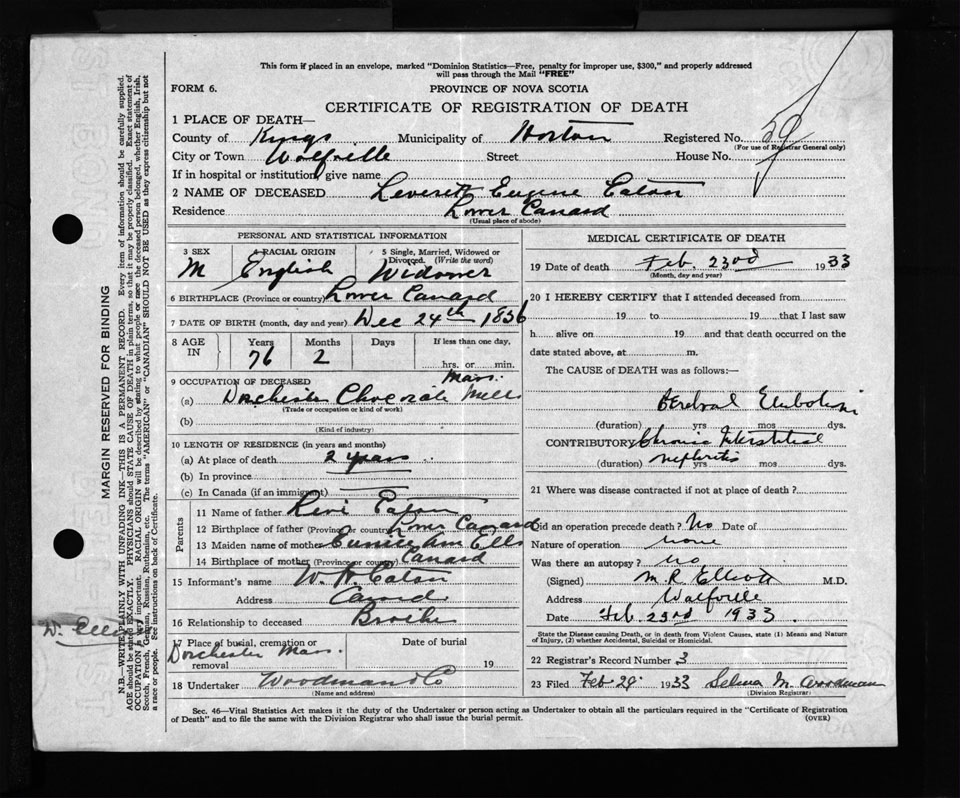 This form if placed in an envelope, marked "Dominion Statistics—Free, penalty for improper use, $300," and properly addressed
will pass through the Mail "FREE"
FORM 6. PROVINCE OF NOVA SCOTIA
CERTIFICATE OF REGISTRATION OF DEATH
1 PLACE OF DEATH—
County of Kings Municipality of Horton Registered No. 59
(For use of Registrar General only)
City or Town Wolfville Street House No.
If in hospital or institution, give name
2 NAME OF DECEASED Leverett Eugene Eaton
Residence Lower Canard
(Usual place of abode)
PERSONAL AND STATISTICAL INFORMATION
3 SEX 4 RACIAL ORIGIN 5 Single, Married, Widowed or
Divorced. (Write the word)
M English Widower
6 BIRTHPLACE (Province or country) Lower Canard
7 DATE OF BIRTH (month, day and year) Dec 24th 1856
8 AGE IN Years Months Days If less than one day,
76 2 hrs. or min.
9 OCCUPATION OF DECEASED Mass.
(a) Dorchester Chocolate Mills
(Trade or occupation or kind of work)
(b)
(Kind of industry)
10 LENGTH OF RESIDENCE (in years and months)
(a) At place of death 2 years
(b) In province
(c) In Canada (if an immigrant)
Parents
11 Name of father Levi Eaton
12 Birthplace of father (Province or country) Lower Canard
13 Maiden name of mother Eunice Ann Ells
14 Birthplace of mother (Province or country) Canard
15 Informant's name W. H. Eaton
Address Canard
16 Relationship to deceased Brother
17 Place of burial, cremation or Date of burial
Dorchester Mass.
removal 19
18 Undertaker Woodman & Co
(Name and address)
MEDICAL CERTIFICATE OF DEATH
19 Date of death Feb. 23rd 1933
(Month, day and year)
20 I HEREBY CERTIFY that I attended deceased from
19 to 19 that I last saw
h alive on 19 and that death occurred on the
date stated above, at m.
The CAUSE of DEATH was as follows:—
Cerebral Embolism
(duration) yrs mos dys.
CONTRIBUTORY Chronic Interstitial
(duration) nephritis yrs mos dys.
21 Where was disease contracted if not at place of death?
Did an operation precede death? No Date of
Nature of operation none
Was there an autopsy? no
(Signed) M. R. Elliott M.D.
Address Wolfville
Date Feb. 23rd 1933
State the Disease causing Death, or in death from Violent Causes, state (1) Means and Nature
of Injury, (2) whether Accidental, Suicidal or Homicidal.
22 Registrar's Record Number 3
23 Filed Feb 28. 1933 Selma M. Woodman
(Division Registrar)
Sec. 46—Vital Statistics Act makes it the duty of the Undertaker or person acting as Undertaker to obtain all the particulars required in the "Certificate of Registration
of Death" and to file the same with the Division Registrar who shall issue the burial permit. (OVER)
MARGIN RESERVED FOR BINDING
N.B.—WRITE PLAINLY WITH UNFADING INK—THIS IS A PERMANENT RECORD. Every item of information should be carefully supplied.
AGE should be stated EXACTLY. PHYSICIANS should STATE CAUSE OF DEATH in plain terms, so that it may be properly classified. Exact statement of
OCCUPATION is very important. RACIAL ORIGIN will be described by stating to what people or race the deceased person belonged, whether English, Irish,
Scotch, French, German, Russian, Ruthenian, etc. The terms "AMERICAN" or "CANADIAN" SHOULD NOT BE USED as they express citizenship but not
a race or people. See instructions on back of Certificate.